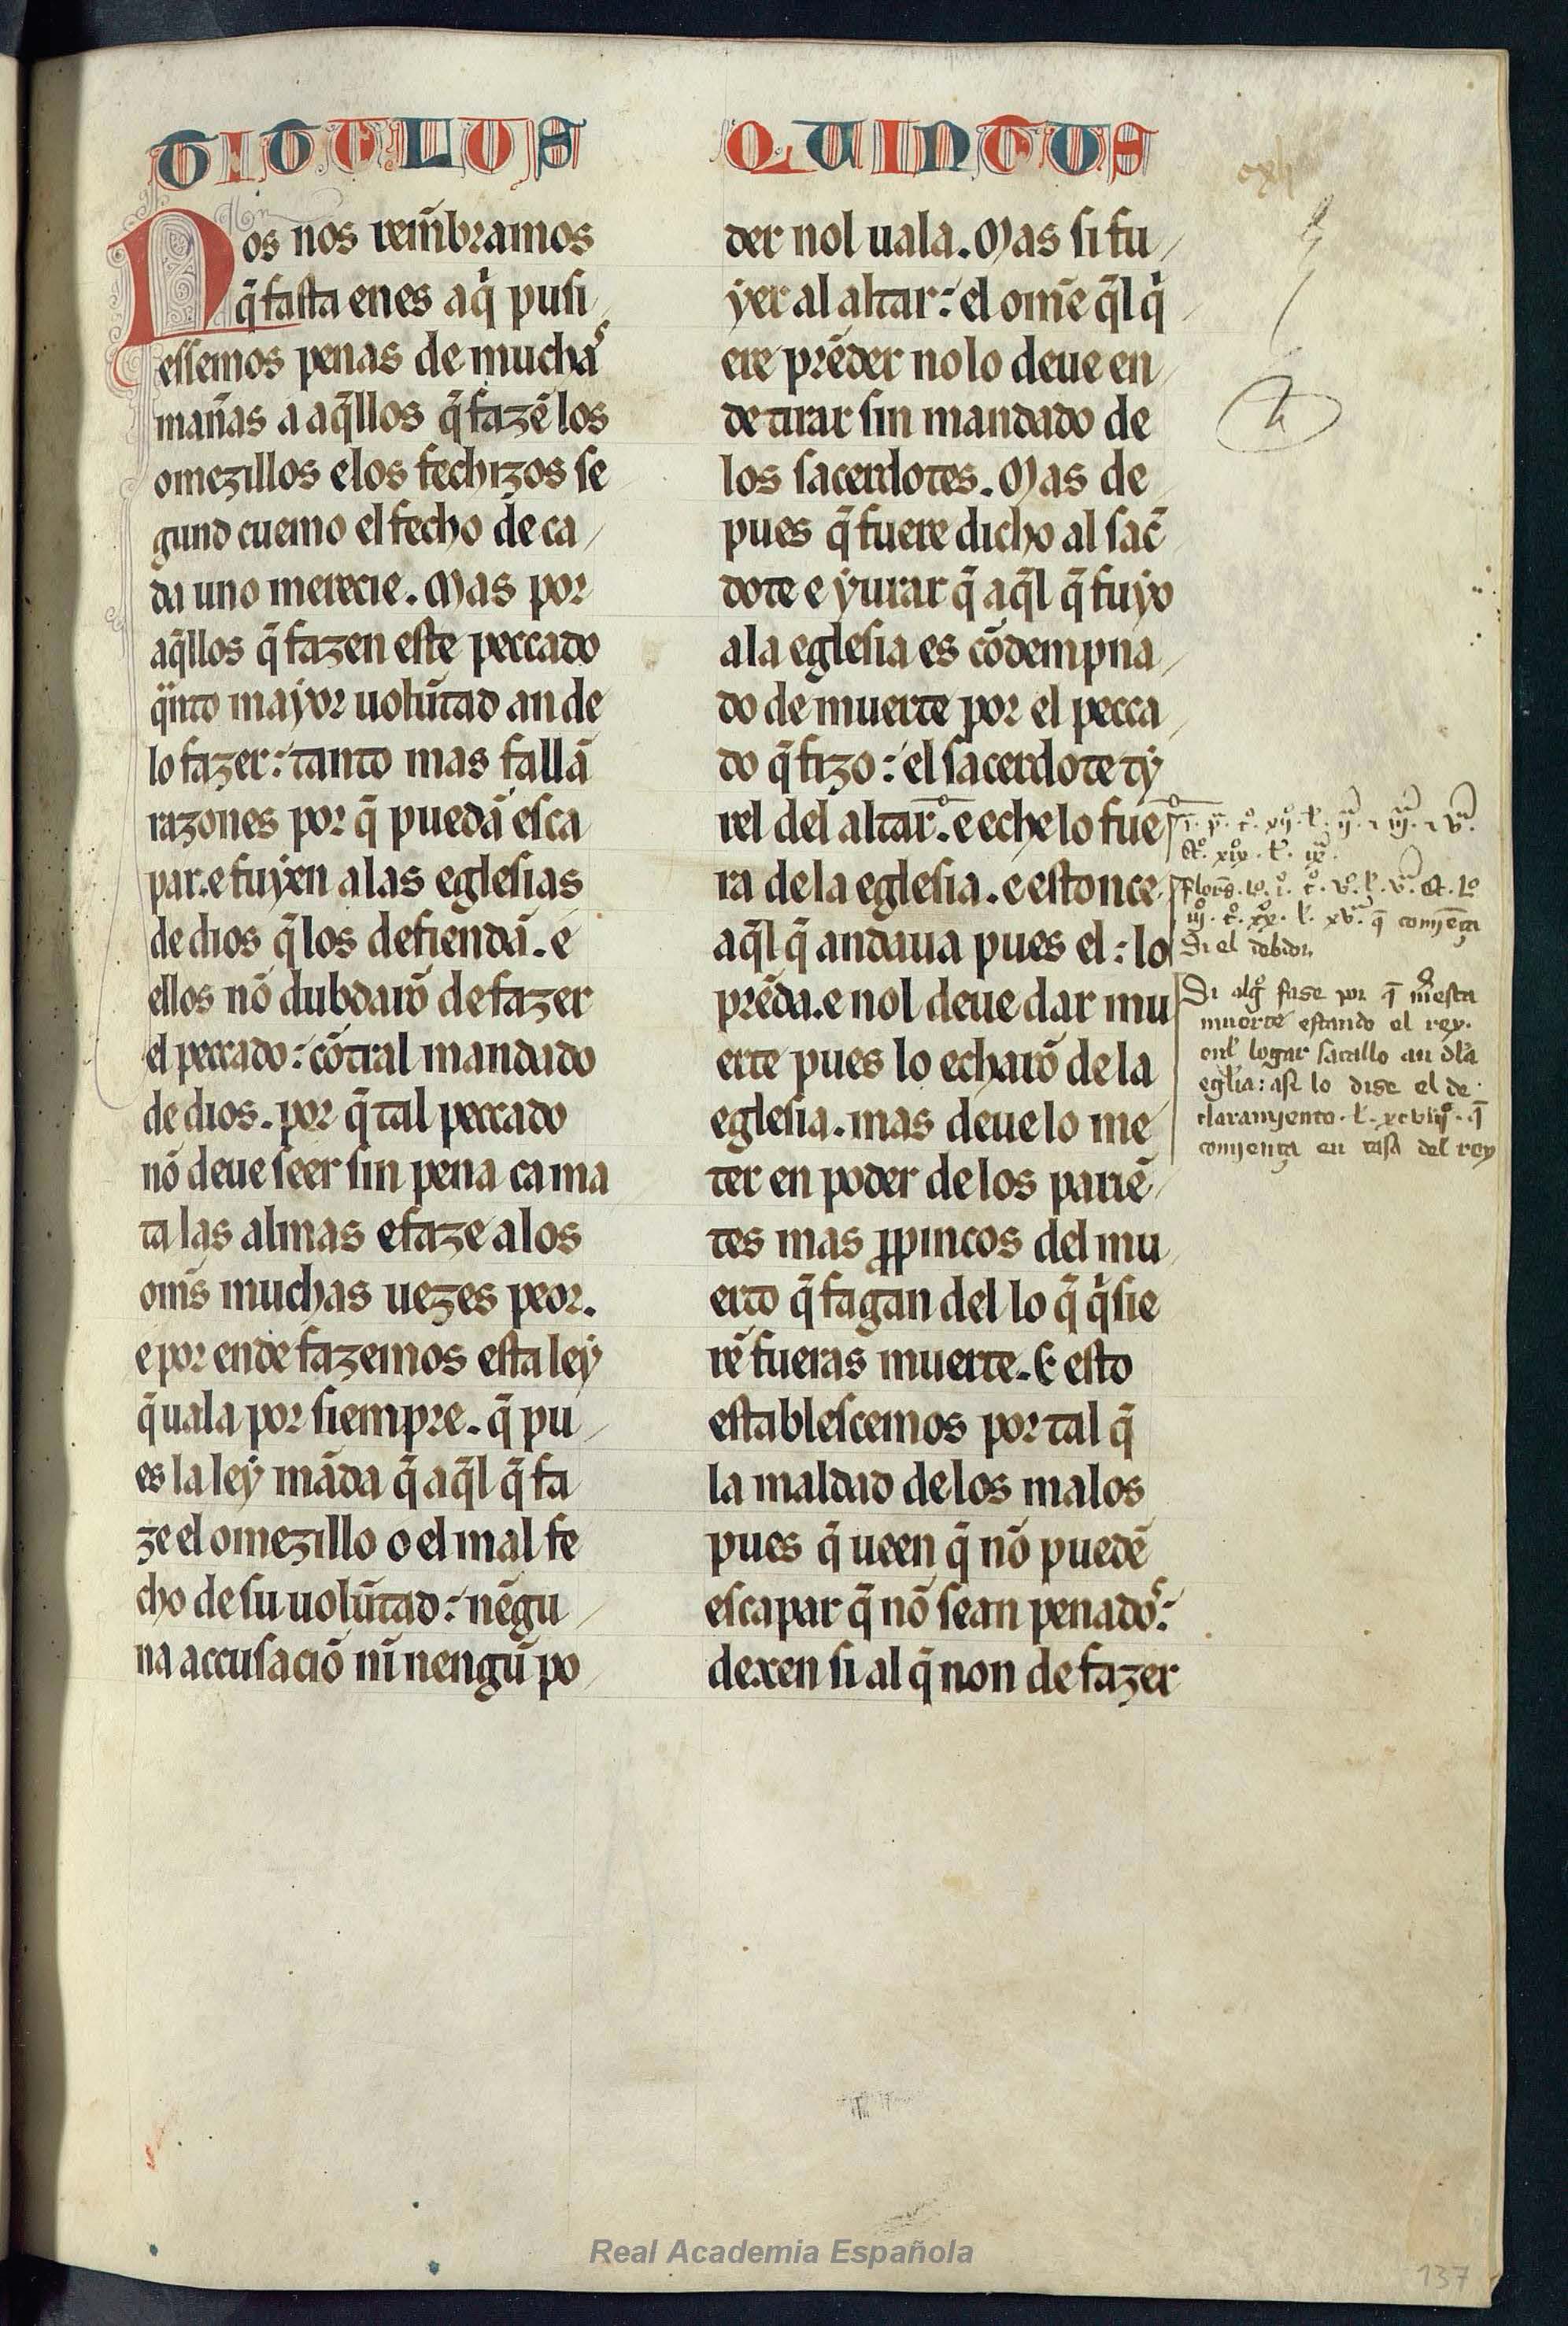 TITULUS QUINTUS
Nos nos rem̃bramos
q̃ fasta en es aq̇ pusi
essemos penas de muchaˢ
mañas a aq̃llos q̃ fazẽ los
omezillos e los fechizos se
gund cuemo el fecho de ca
da uno merecie. Mas por
aq̃llos q̃ fazen este peccado
qᷓnto mayor uolũtad an de
lo fazer: tanto mas fallã
razones por q̃ puedã esca
par. e fuyen a las eglesias
de dios q̃ los defiendã. e
ellos nõ dubdarõ de fazer
el peccado: cõtral mandado
de dios. por q̃ tal peccado
nõ deue seer sin pena ca ma
ta las almas e faze a los
om̃s muchas uezes peor.
e por ende fazemos esta ley
q̃ uala por siempre. q̃ pu
es la ley mãda q̃ aq̃l q̃ fa
ze el omezillo o el mal fe
cho de su uolũtad: nẽgu
na accusaciõ nĩ nengũ po
der nol uala. Mas si fu
yer al altar: el om̃e q̃l q̇
ere prẽder no lo deue en
de tirar sin mandado de
los sacerdotes. Mas de
pues q̃ fuere dicho al sac̃
dote e yurar q̃ aq̃l q̃ fuyo
a la eglesia es cõdempna
do de muerte por el pecca
do q̃ fizo: el sacerdote ty
rel del altar. e eche lo fue
ra de la eglesia. e estonce
aq̃l q̃ andaua pues el: lo
prẽda. e nol deue dar mu
erte pues lo echarõ de la
eglesia. mas deue lo me
ter en poder de los pariẽ
tes mas ꝓpincos del mu
erto q̃ fagan del lo q̃ q̇sie
rẽ fueras muerte. E esto
establescemos por tal q̃
la maldad de los malos
pues q̃ ueen q̃ nõ puedẽ
escapar q̃ nõ sean penadoˢ:
dexen si al q̃ non de fazer
q̃ comiẽça
Si el debdor
Si algͦ fase por q̃ meresca
muerte estando el rey
enl logar sacallo an dla
eglia: asi lo dise el de
claramyento. l. xcviijͦ. q̃
comiença en casa del rey
Real Academia Española
137